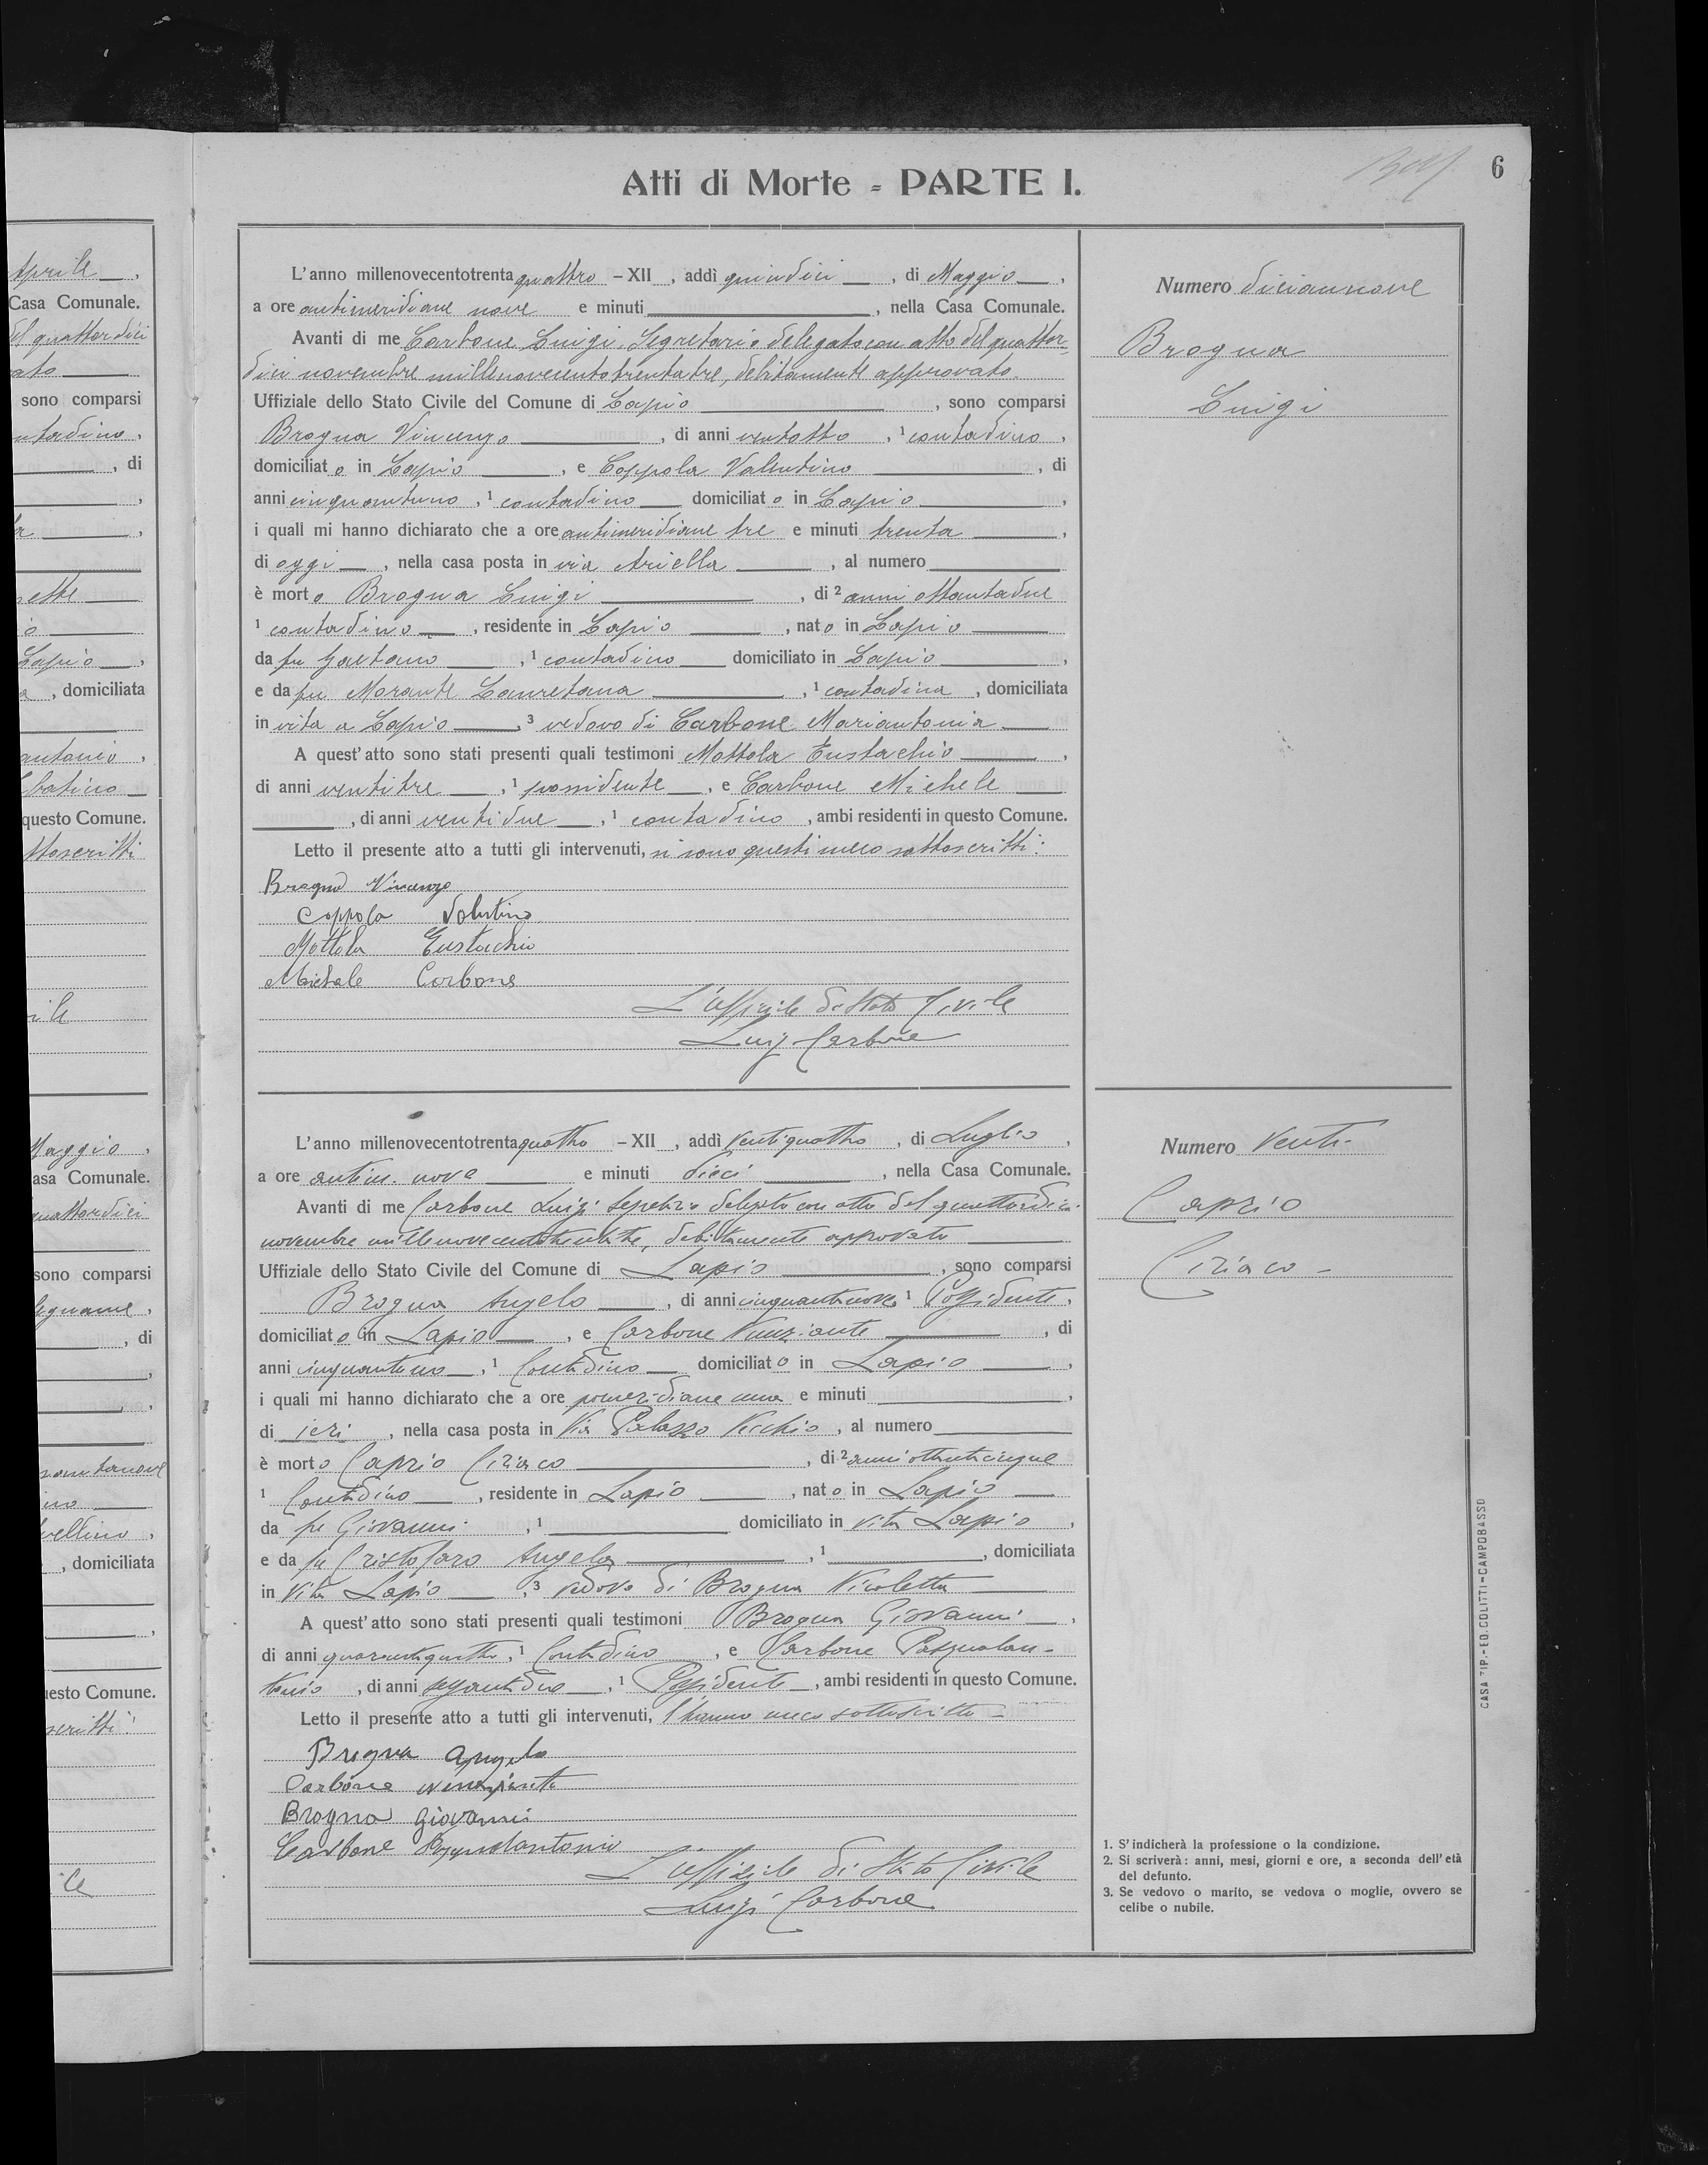 Aprile,
Casa Comunale.
del quattordici
ato
sono comparsi
ntadino,
, di
,
a,
sette
io
Lapio,
a, domiciliata
antonio,
batino
questo Comune.
ttoscritti
ile
Maggio,
asa Comunale.
quattordici
sono comparsi
legname,
, di
,
ino
vellino,
, domiciliata
,
uesto Comune.
scritti:
Atti di Morte = PARTE I.
6
L'anno millenovecentotrentaquattro - XII, addì quindici, di Maggio,
a ore antimeridiane nove e minuti, nella Casa Comunale.
Avanti di me Carbone Luigi. Segretario delegato con atto del quattor=
dici novembre millenovecentotrentatre, debitamente approvato.
Uffiziale dello Stato Civile del Comune di Lapio, sono comparsi
Brogna Vincenzo, di anni ventotto, 1 contadino,
domiciliato in Lapio, e Coppola Valentino, di
anni cinquantuno, 1 contadino domiciliato in Lapio,
i quali mi hanno dichiarato che a ore antimeridiane tre e minuti trenta,
di oggi, nella casa posta in via Ariella, al numero
è morto Brogna Luigi, di 2 anni ottantadue
1 contadino, residente in Lapio, nato in Lapio
da fu Gaetano, 1 contadino domiciliato in Lapio,
e da fu Morante Lauretana, 1 contadina, domiciliata
in vita a Lapio, 3 vedovo di Carbone Mariantonia
A quest'atto sono stati presenti quali testimoni Mottola Eustachio,
di anni ventitre, 1 possidente, e Carbone Michele
, di anni ventidue, 1 contadino, ambi residenti in questo Comune.
Letto il presente atto a tutti gli intervenuti, si sono questi meco sottoscritti:
Brogna Vincenzo
Coppola Valentino
Mottola Eustachio
Michele Carbone
L'Ufficiale di Stato Civile
Luigi Carbone
Numero diciannove
Brogna
Luigi
L'anno millenovecentotrentaquattro - XII, addì ventiquattro, di Luglio,
a ore antim. nove e minuti dieci, nella Casa Comunale.
Avanti di me Carbone Luigi Segretario delegato con atto del quattordici
novembre millenovecentotrentatre, debitamente approvato
Uffiziale dello Stato Civile del Comune di Lapio, sono comparsi
Brogna Angelo, di anni cinquantanove, 1 Possidente,
domiciliato in Lapio, e Carbone Nunziante, di
anni cinquantuno, 1 Contadino domiciliato in Lapio,
i quali mi hanno dichiarato che a ore pomeridiane una e minuti,
di ieri, nella casa posta in Via Palazzo Vecchio, al numero
è morto Caprio Ciriaco, di 2 anni ottantacinque
1 Contadino, residente in Lapio, nato in Lapio
da fu Giovanni, 1 domiciliato in vita Lapio,
e da fu Cristofaro Angela, 1, domiciliata
in vita Lapio, 3 vedovo di Brogna Nicoletta
A quest'atto sono stati presenti quali testimoni Brogna Giovanni,
di anni quarantaquattro, 1 Contadino, e Carbone Pasqualan-
tonio, di anni sessantadue, 1 Possidente, ambi residenti in questo Comune.
Letto il presente atto a tutti gli intervenuti, l'hanno meco sottoscritto -
Brogna Angelo
Carbone Nunziante
Brogna Giovanni
Carbone Pasqualantonio
L'Ufficiale di Stato Civile
Luigi Carbone
Numero Venti -
Caprio
Ciriaco -
1. S'indicherà la professione o la condizione.
2. Si scriverà: anni, mesi, giorni e ore, a seconda dell'età
del defunto.
3. Se vedovo o marito, se vedova o moglie, ovvero se
celibe o nubile.
CASA TIP.-ED. COLITTI-CAMPOBASSO